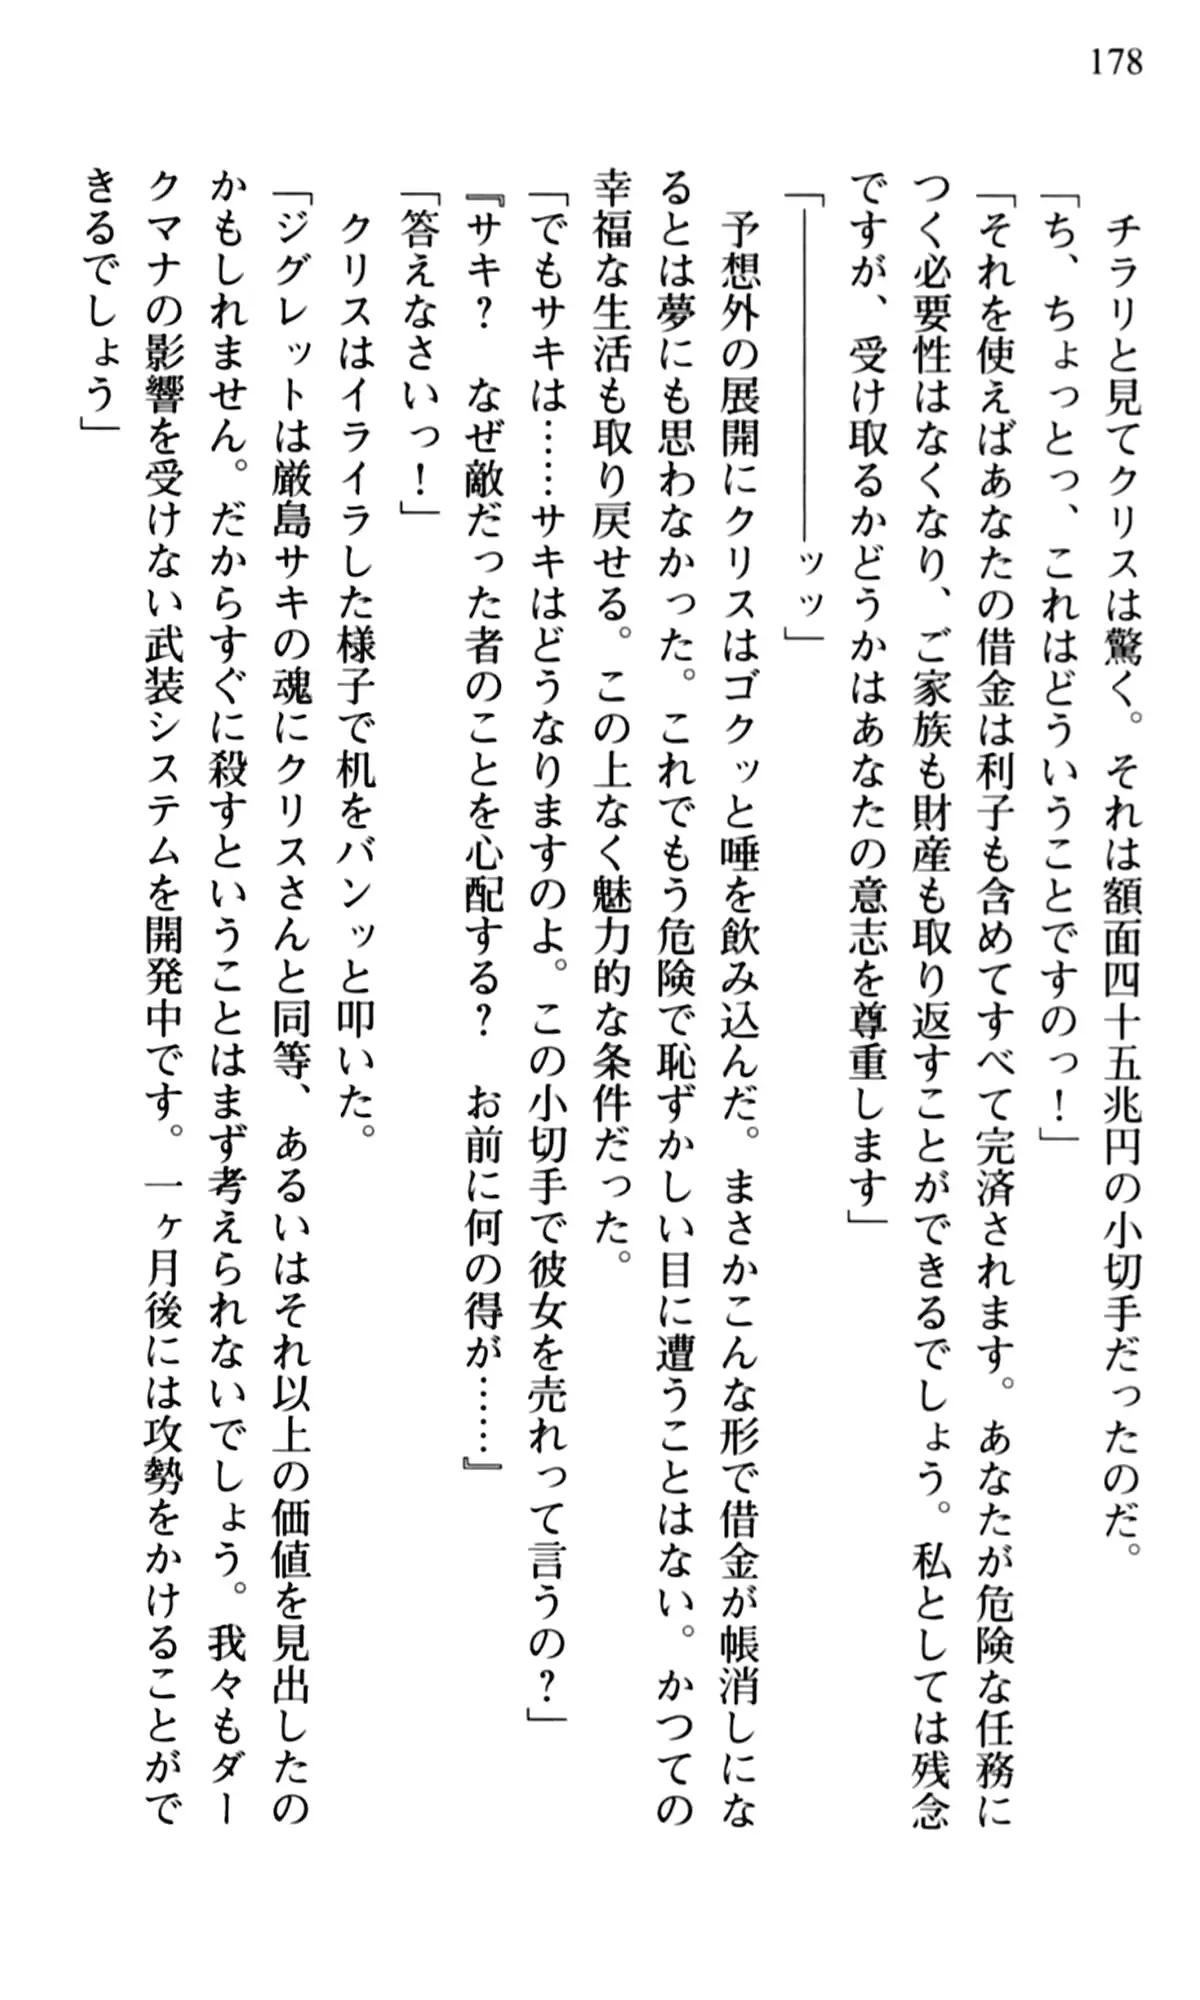 178
　チラリと見てクリスは驚く。それは額面四十五兆円の小切手だったのだ。
「ち、ちょっとっ、これはどういうことですのっ！」
「それを使えばあなたの借金は利子も含めてすべて完済されます。あなたが危険な任務に
つく必要性はなくなり、ご家族も財産も取り返すことができるでしょう。私としては残念
ですが、受け取るかどうかはあなたの意志を尊重します」
「――――――――ッッ」
　予想外の展開にクリスはゴクッと唾を飲み込んだ。まさかこんな形で借金が帳消しにな
るとは夢にも思わなかった。これでもう危険で恥ずかしい目に遭うことはない。かつての
幸福な生活も取り戻せる。この上なく魅力的な条件だった。
「でもサキは……サキはどうなりますのよ。この小切手で彼女を売れって言うの？」
『サキ？　なぜ敵だった者のことを心配する？　お前に何の得が……』
「答えなさいっ！」
　クリスはイライラした様子で机をバンッと叩いた。
「ジグレットは厳島サキの魂にクリスさんと同等、あるいはそれ以上の価値を見出したの
かもしれません。だからすぐに殺すということはまず考えられないでしょう。我々もダー
クマナの影響を受けない武装システムを開発中です。一ヶ月後には攻勢をかけることがで
きるでしょう」